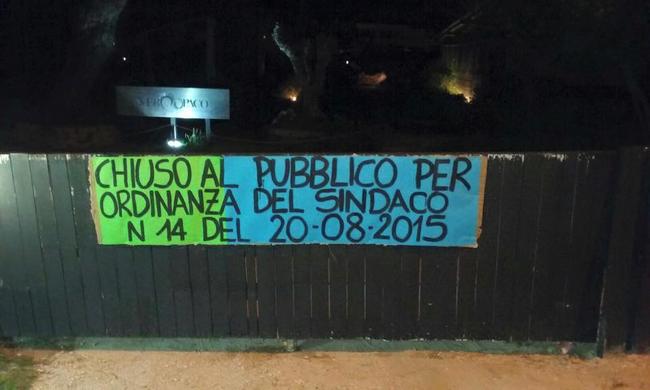 CHIUSO AL PUBBLICO PER
ORDINANZA DEL SINDACO
N 14 DEL 20-08-2015